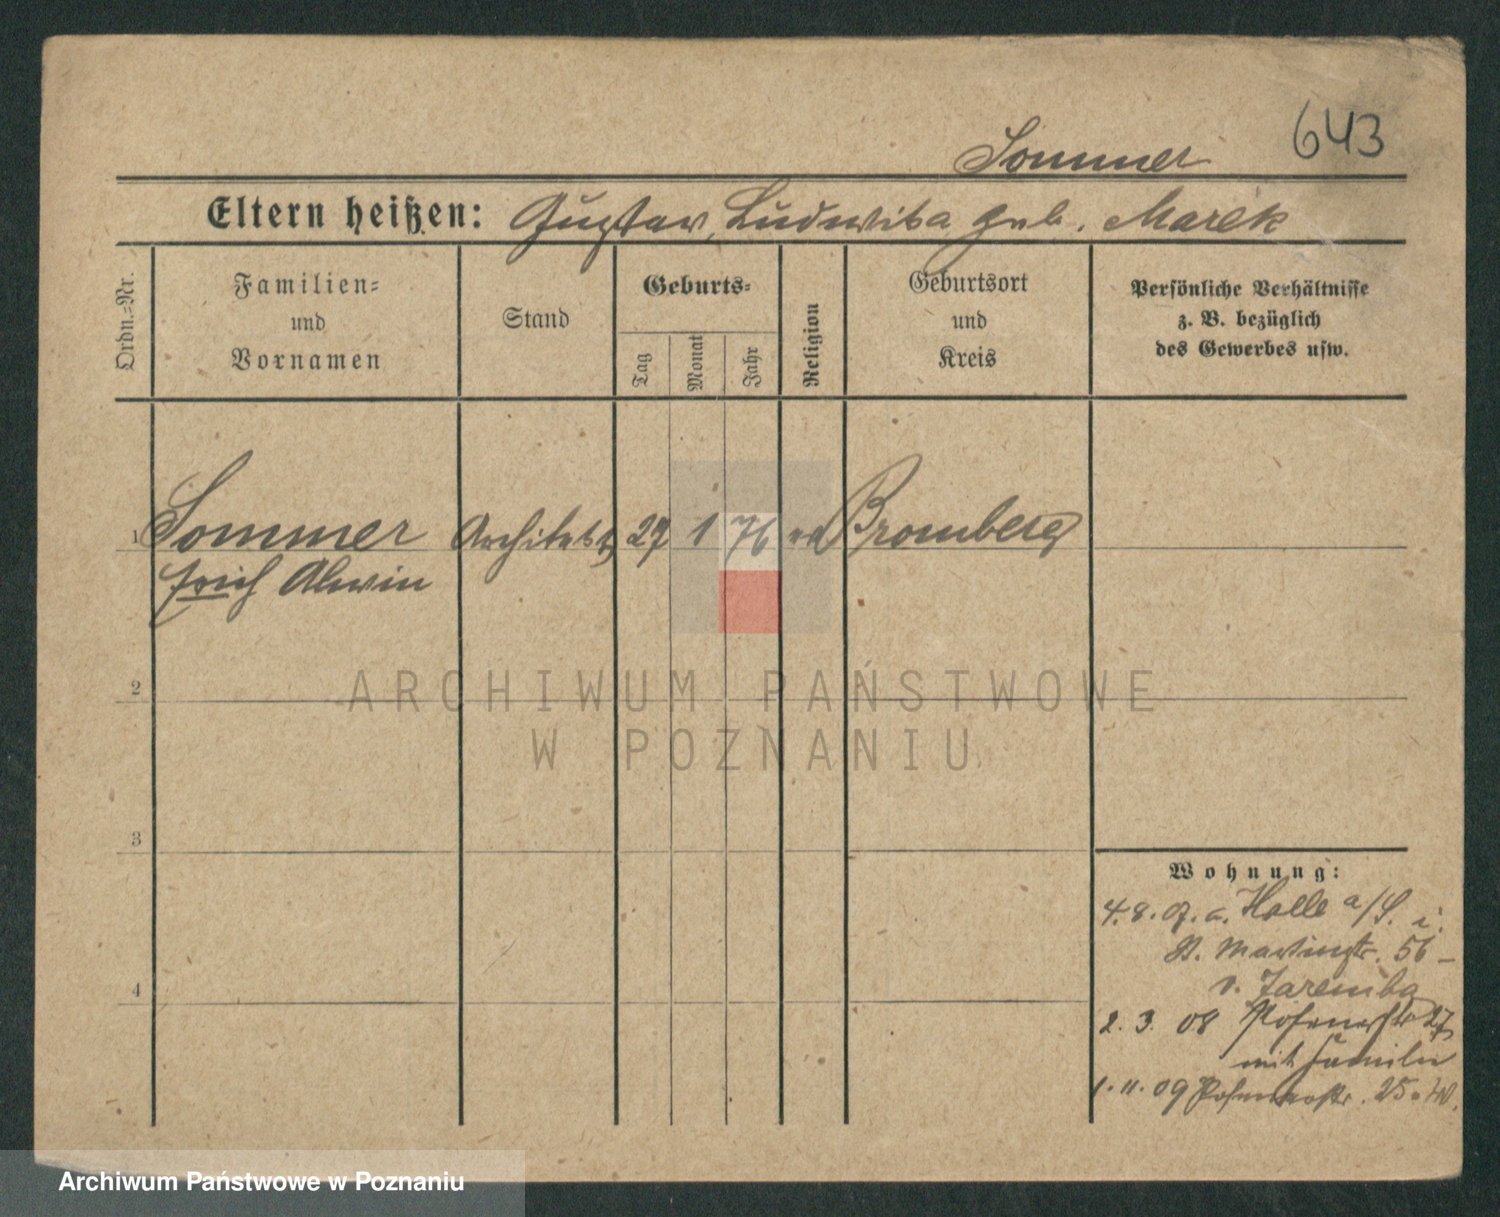 643
Sommer
Eltern heißen: Gustav, Ludwika geb. Marek
Ordn.-Nr.
Familien- und Vornamen
Stand
Geburts-
Tag
Monat
Jahr
Religion
Geburtsort und Kreis
Persönliche Verhältnisse
z. B. bezüglich
des Gewerbes usw.
1 Sommer Architekt 27 1 76 ev Bromberg
Erich Alwin
2
3
4
Wohnung:
4.8.07. a. Halle a/S. i.
St. Martinstr. 56 -
v. Zaremba
2. 3. 08 Posenerstr 27
mit Familie
1. 11. 09 Posenerstr. 25.
ARCHIWUM PAŃSTWOWE
W POZNANIU
Archiwum Państwowe w Poznaniu